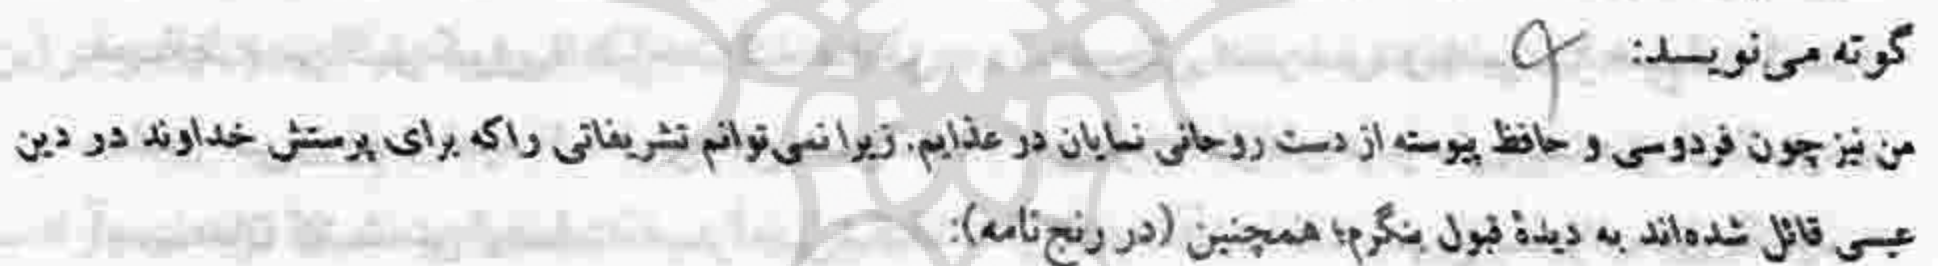 گوته می‌نویسد:
من نیز چون فردوسی و حافظ پیوسته از دست روحانی نمایان در عذابم. زیرا نمی‌توانم تشریفاتی را که برای پرستش خداوند در دین
عیسی قائل شده‌اند به دیدهٔ قبول بنگرم؛ همچنین (در رنج‌نامه):